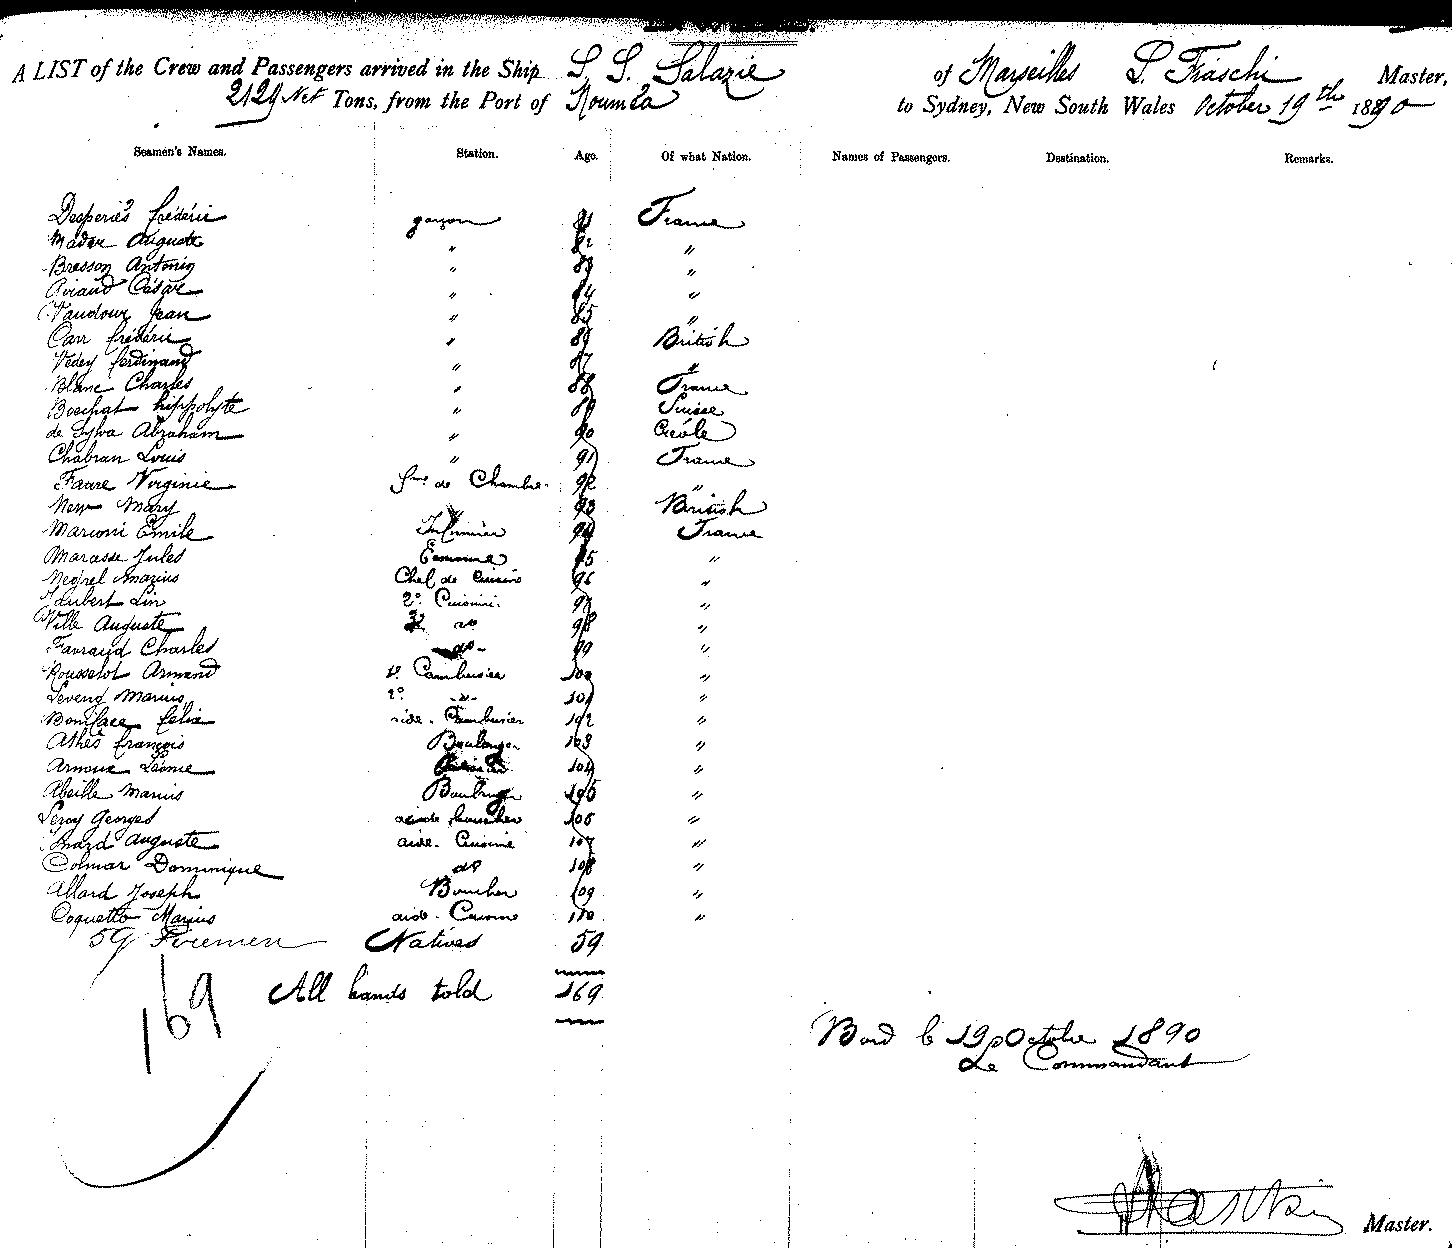 A LIST of the Crew and Passengers arrived in the Ship S. S. Salazie of Marseilles L. Fiaschi Master,
2129 Net Tons, from the Port of Nouméa to Sydney, New South Wales October 19th 1890
Seamen's Names. Station. Age. Of what Nation. Names of Passengers. Destination. Remarks.
Desperiés frédéric garçon 81 France
Mader Auguste " 82 "
Bresson Antonin " 83 "
Airaud César " 84 "
Vaudour Jean " 85 "
Carr frédéric " 86 British
Vedey ferdinand " 87 "
Blanc Charles " 88 France
Boschat hippolyte " 89 Suisse
de Sylva Abraham " 90 Créole
Chabran Louis " 91 France
Faure Virginie fme de Chambre 92 "
New Mary 93 British
Marioni Emile Infirmier 94 France
Marasse Jules 95 "
Negrel Marius Chef de Cuisine 96 "
Joubert Lin 2e Cuisini. 97 "
Ville Auguste 3e do 98 "
Favraud Charles do 99 "
Rousselot Armand 1e Cambusier 100 "
Leveng Marius 2e -"- 101 "
Boniface félix aide-Cambusier 102 "
Athès françois Boulanger 103 "
Arnoux Léonce 104 "
Abeille Marius Boulanger 105 "
Leroy Georges aide boucher 106 "
Isnard Auguste aide-Cuisine 107 "
Colmar Dominique do 108 "
Allard Joseph Boucher 109 "
Coquetto Marius aide-Cuisine 110 "
59 Firemen Natives 59
All hands told 169
169
Bord le 19 Octobre 1890
Le Commandant
Master.